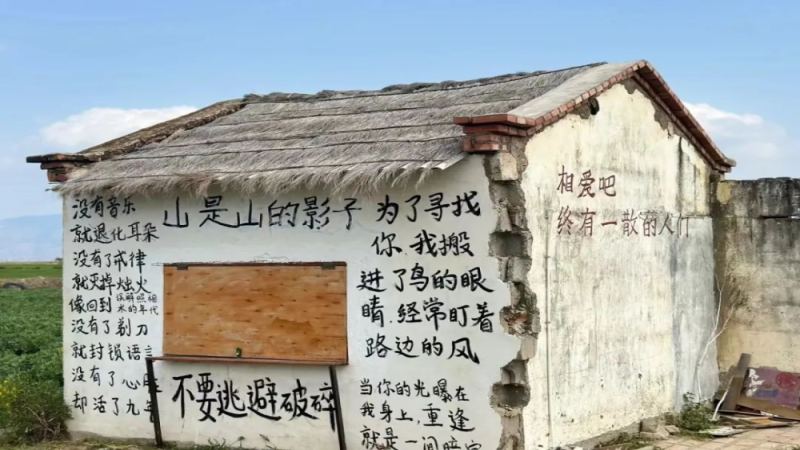 没有音乐
就退化耳朵
没有了戒律
就灭掉烛火
像回到误解照相
术的年代
没有了剃刀
就封锁语言
没有了心脏
却活了九年
山是山的影子
不要逃避破碎
为了寻找
你 我搬
进了鸟的眼
睛 经常盯着
路边的风
当你的光曝在
我身上,重逢
就是一间暗室
相爱吧
终有一散的人们